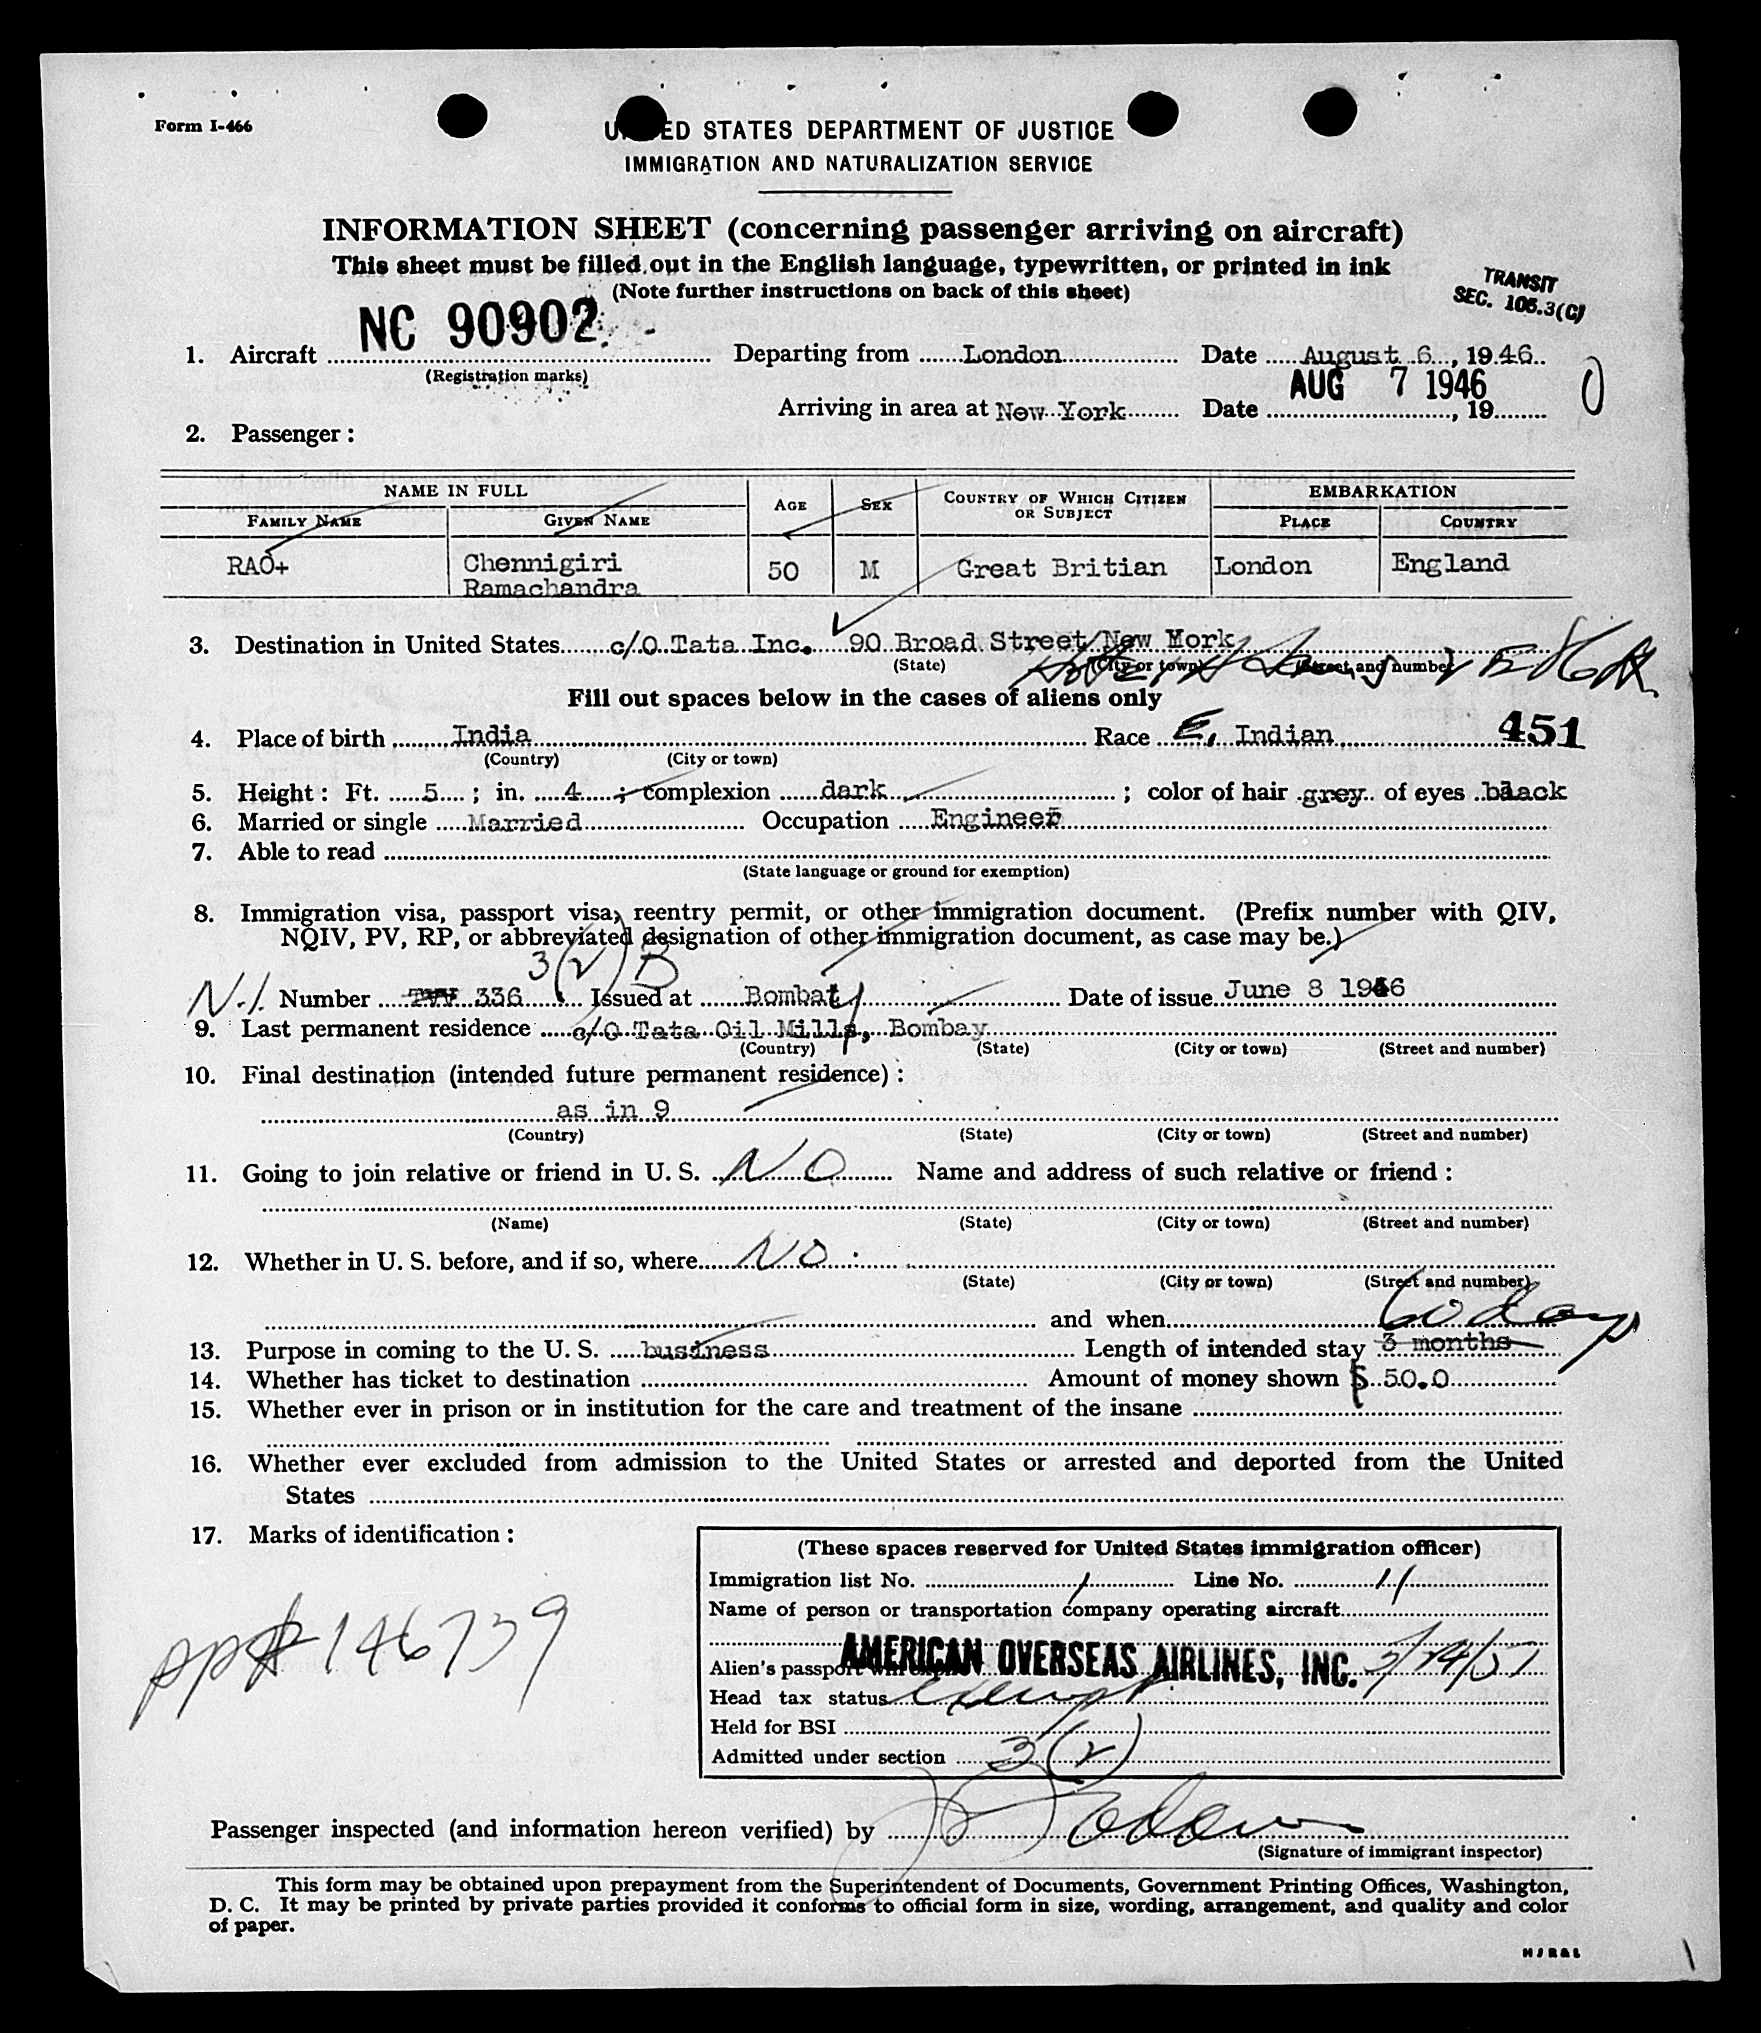 Form I-466
UNITED STATES DEPARTMENT OF JUSTICE
IMMIGRATION AND NATURALIZATION SERVICE
INFORMATION SHEET (concerning passenger arriving on aircraft)
This sheet must be filled out in the English language, typewritten, or printed in ink
(Note further instructions on back of this sheet)
TRANSIT
SEC. 105.3(C)
NC 90902
1. Aircraft Departing from London Date August 6, 1946
(Registration marks)
AUG 7 1946
Arriving in area at New York Date , 19 0
2. Passenger :
NAME IN FULL AGE SEX COUNTRY OF WHICH CITIZEN OR SUBJECT EMBARKATION
FAMILY NAME GIVEN NAME PLACE COUNTRY
RAO+ Chennigiri 50 M Great Britian London England
Ramachandra
3. Destination in United States c/O Tata Inc. 90 Broad Street/New Mork
(State) (City or town) (Street and number)
Fill out spaces below in the cases of aliens only
4. Place of birth India Race E. Indian 451
(Country) (City or town)
5. Height : Ft. 5 ; in. 4 ; complexion dark ; color of hair grey of eyes black
6. Married or single Married Occupation Engineer
7. Able to read
(State language or ground for exemption)
8. Immigration visa, passport visa, reentry permit, or other immigration document. (Prefix number with QIV,
NQIV, PV, RP, or abbreviated designation of other immigration document, as case may be.)
3(2)B
N.I. Number 336 Issued at Bombay Date of issue June 8 1946
9. Last permanent residence c/O Tata Oil Mills, Bombay
(Country) (State) (City or town) (Street and number)
10. Final destination (intended future permanent residence) :
as in 9
(Country) (State) (City or town) (Street and number)
11. Going to join relative or friend in U. S. NO Name and address of such relative or friend :
(Name) (State) (City or town) (Street and number)
12. Whether in U. S. before, and if so, where NO
(State) (City or town) (Street and number)
and when 60 days
13. Purpose in coming to the U. S. business Length of intended stay 3 months
14. Whether has ticket to destination Amount of money shown $ 50.0
15. Whether ever in prison or in institution for the care and treatment of the insane
16. Whether ever excluded from admission to the United States or arrested and deported from the United
States
17. Marks of identification :
(These spaces reserved for United States immigration officer)
Immigration list No. 1 Line No. 11
Name of person or transportation company operating aircraft
AMERICAN OVERSEAS AIRLINES, INC.
Alien's passport
Head tax status exempt
Held for BSI
Admitted under section 3(2)
pp# 146739
Passenger inspected (and information hereon verified) by
(Signature of immigrant inspector)
This form may be obtained upon prepayment from the Superintendent of Documents, Government Printing Offices, Washington,
D. C. It may be printed by private parties provided it conforms to official form in size, wording, arrangement, and quality and color
of paper.